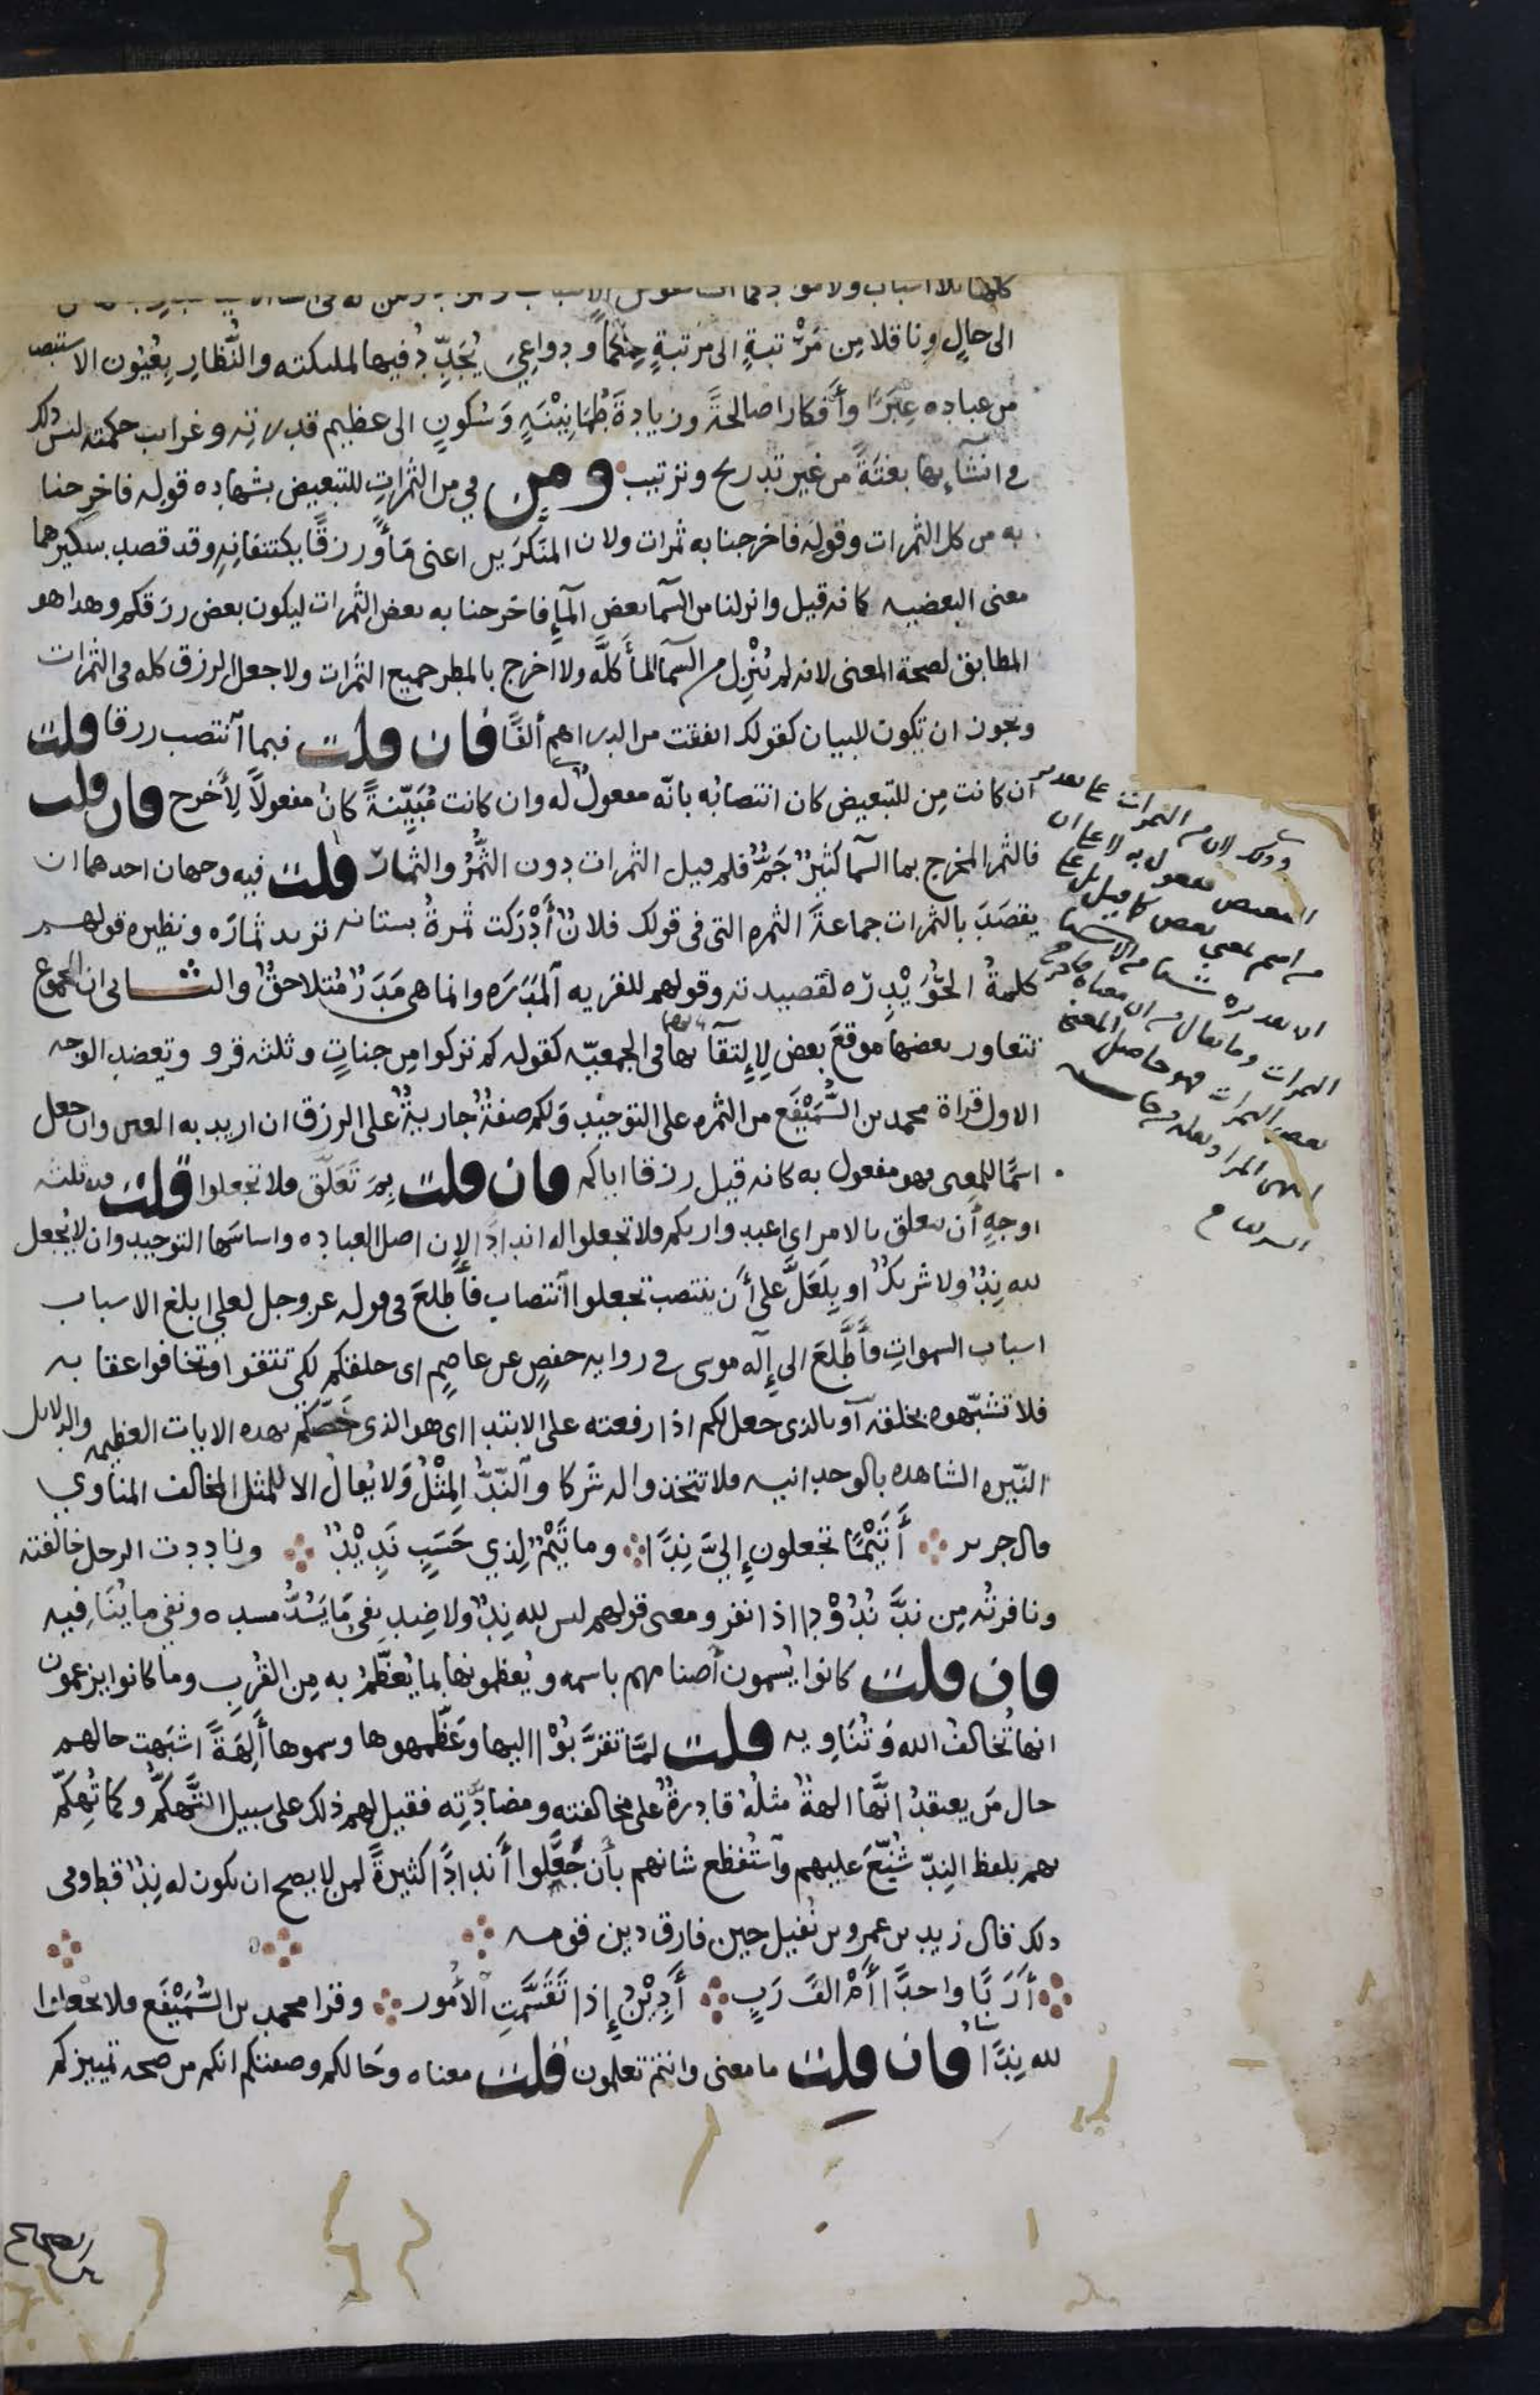 كلها بلا اسباب ولا مواد كما انشا نفوس الاسباب والمواد ولكن له فى انشا الاشيا
الى حالٍ وناقلا مِن مَرْتبةٍ الى مرتبةٍ حِكَمًا ودواعِيَ يُجَدِّدُ فيها لملىكته والنُّظارِ بِعُيُون الاستبصا
من عباده عِبَرًا وأَفكارا صالحةً وزيادةَ طُمَانِيْنَةٍ وَسُكونٍ الى عظيم قدرته وغراىب حكمته ليس ذلك
فى انشآىها بغتَةً من غير تدريح وترتيب ومِن في من الثمراتِ للتبعيض بشهاده قوله فاخرجنا
به من كل الثمرات وقوله فاخرجنا به ثمرات ولان المنَكَّرَين اعنى مَاءً ورزقًا يكتنفانِهِ وقد قصد بىىكىرهما
معنى البعضيه كانه قيل وانزلنا من السمآ بعض المآءِ فاخرجنا به بعض الثمرات ليكون بعض رزقكم وهدا هو
المطابق لصحة المعنى لانه لم يُنْزِل من السمآ المآ كلَّه ولا اخرج بالمطر جميع الثمرات ولا جعل الرزق كله فى الثمرات
ويجوز ان تكون للبيان كقولك انفقت من الدراهم ألفًا فان قلت فبما اَنتصب رزقا قلت
ان كانت مِن للتبعيض كان انتصابُه بانّه مفعولٌ له وان كانت مُبَيِّنةً كانَ مفعولاً لِأَخرج فان قلت
فالثمر المخرج بما السمآ كثيرٌ جَمٌّ فلم قيل الثمرات دون الثَّمُرِ والثمارِ قلت فيه وجهان احدهما ان
يقصَدَ بالثمرات جماعةَ الثمره التى فى قولك فلانٌ أَدْرَكت ثمرةُ بستانه تريد ثمارَه ونظيره قولهم
كلمةُ الحُوَيْدِرَه لقصيدته وقولهم للقريه اَلمَدَرَه وانما هى مَدَرٌ مُتلاحقٌ والثـانى ان الجموع
تتعاور بعضها موقعَ بعض لِاِلتقآىها فى الجمعيّه كقوله كم تركوا مِن جناتٍ وثلثه قرو وتعضد الوجه
الاول قراة محمد بن السَّمَيْفَع من الثمره على التوحيْد وَلكم صفةٌ جاريةٌ على الرزق ان اريد به العين وان جعل
اسمًا للمعنى فهو مفعول به كانه قيل رزقا اياكم فان قلت بِمَ تَعَلَّق فلا تجعلوا قلت فىه ثلثه
اوجهٍ أن يىعلق بالامر اى اعبدوا ربكم فلا تجعلوا له اندادًا لان اصل العباده واساسَها التوحيد وان لا يُجعل
لله نِدٌّ ولا شريكٌ او بِلَعَلَّ على أن ينتصب تجعلوا اَنتصاب فأَطلعَ فى قوله عز وجل لعلى ابلغ الاسباب
اسباب السموات فأَطَّلعَ الى إِله موسى فى روايه حفصٍ عن عاصمٍ اى خلقكم لكى تتقوا وتخافوا عقابه
فلا تشبّهوه بخلقه اَو بالذى جعل لكم اذا رفعته على الابتدا اى هو الذى خَصَّكم بهده الايات العظيمه والدلايل
النّيره الشاهده بالوحدانيه فلا تتخذوا له شركا واَلنّدُّ المِثْلُ وَلا يُقالُ الا للمثل المخالف المناوي
قال جرير أَتَيْمًا تجعلون إِليَّ نِدًّا وما تَيْمٌ لِذي حَسَبٍ نَدِيْدٌ وناددت الرجل خالفته
ونافرتُه مِن ندَّ نُدُوْدًا اذا نفر ومعنى قولهم ليس لله نِدٌّ ولا ضِد نفى مَا يَسُدُّ مسده ونفى ما يُنَافيه
فان قلت كانوا يُسمون أصنامهم باسمه ويُعظمونها بما يُعَظَّمُ به مِن القُرَبِ وما كانوا يزعمون
انها تُخالفُ الله وَتُنَاويه قلت لمّا تقرَّبُوْا اليها وعَظّموها وسموها أَلِهَةً اشبَهت حالهم
حال مَن يعتقدُ انَّها الهةٌ مثلُهُ قادرةٌ على مخالفته ومضادَّتِه فقيل لهم ذلك على سبيل التَّهكُّمِ وكما تُهِكِّمَ
بهم بلفظ النِدّ شُنِّعَ عليهم واَستُفظع شانهم بأن جَعَلوا أندادًا كثيرةً لمن لا يصح ان يكون له نِدٌّ قط وفى
ذلك قال زيد بن عمرو بن نُفيل حين فارق دين قومه
أرَبًّا واحدًا أَمْ الفَ رَبٍ أَدِيْنُ إِذا تَقَسَّمَتِ اَلأُمور وقرا محمد بن السَّمَيْفَع فلا تجعلوا
لله نِدًّا فان قلت ما معنى وانتم تعلمون قلت معناه وحَالكم وصفتكم انكم من صحه تمييزكم
وذلك لان من الثمرات على تقدير
التبعيض مفعول به لا على ان
من اسم بمعنى بعض كما قيل بل على
ان تقديره شيئا من الاشيا
الثمرات وما يقال من ان معناه فاخرج
بعض الثمرات فهو حاصل المعنى